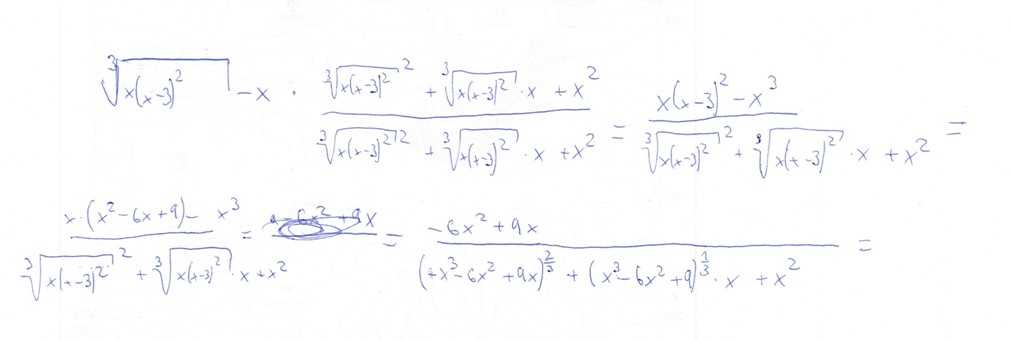 ∛(x(x-3)²) - x · (∛(x(x-3)²)² + ∛(x(x-3)²) · x + x²)/(∛(x(x-3)²)² + ∛(x(x-3)²) · x + x²) = (x(x-3)² - x³)/(∛(x(x-3)²)² + ∛(x(x-3)²) · x + x²) =
(x · (x² - 6x + 9) - x³)/(∛(x(x-3)²)² + ∛(x(x-3)²) · x + x²) = = (-6x² + 9x)/((+x³ - 6x² + 9x)^(2/3) + (x³ - 6x² + 9)^(1/3) · x + x²) =